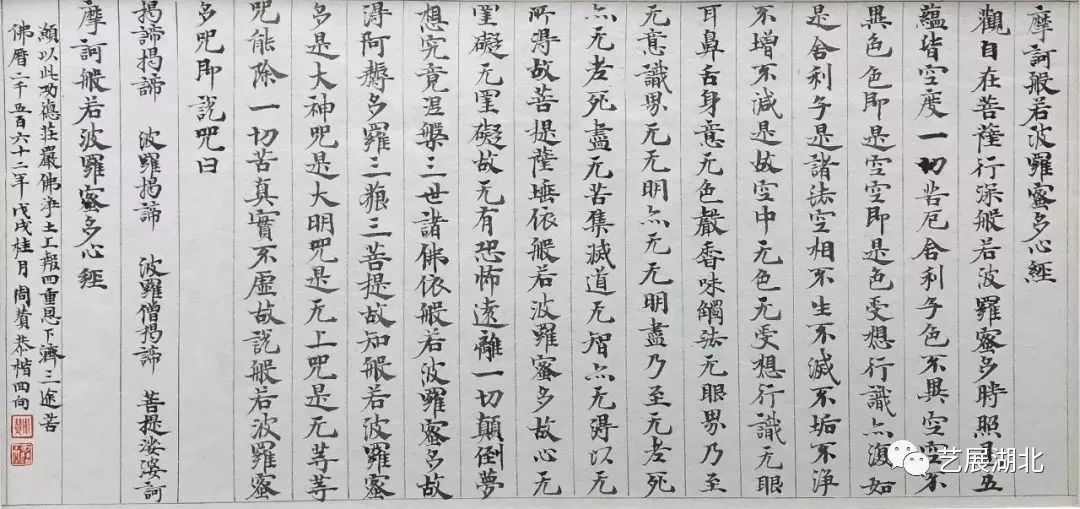 摩訶般若波羅蜜多心經
觀自在菩薩行深般若波羅蜜多時照見五
蘊皆空度一切苦厄舍利子色不異空空不
異色色即是空空即是色受想行識亦復如
是舍利子是諸法空相不生不滅不垢不淨
不增不減是故空中无色无受想行識无眼
耳鼻舌身意无色聲香味觸法无眼界乃至
无意識界无无明亦无无明盡乃至无老死
亦无老死盡无苦集滅道无智亦无得以无
所得故菩提薩埵依般若波羅蜜多故心无
罣礙无罣礙故无有恐怖遠離一切顛倒夢
想究竟涅槃三世諸佛依般若波羅蜜多故
得阿耨多羅三藐三菩提故知般若波羅蜜
多是大神咒是大明咒是无上咒是无等等
咒能除一切苦真實不虛故說般若波羅蜜
多咒即說咒曰
揭諦揭諦 波羅揭諦 波羅僧揭諦 菩提娑婆訶
摩訶般若波羅蜜多心經
願以此功德莊嚴佛淨土上報四重恩下濟三途苦
佛曆二千五百六十二年戊戌桂月周蕡恭楷回向
艺展湖北